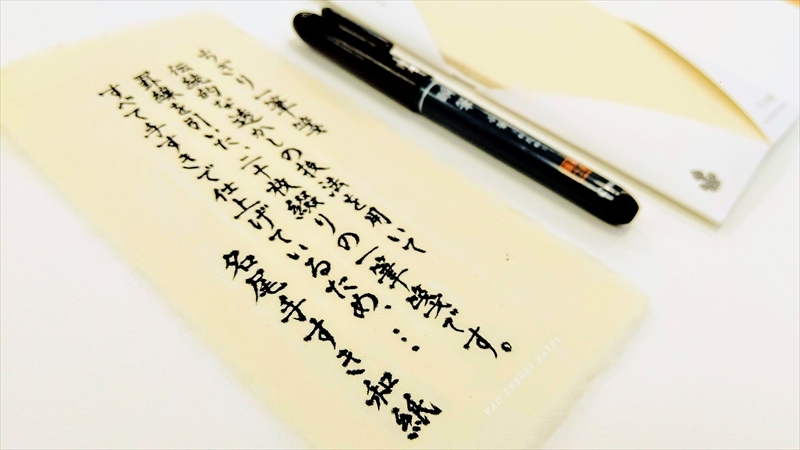 ちぎり一筆箋
伝統的な透かしの技法を用いて
罫線を引いた二十枚綴りの一筆箋です。
すべて手すきで仕上げているため…
名尾手すき和紙